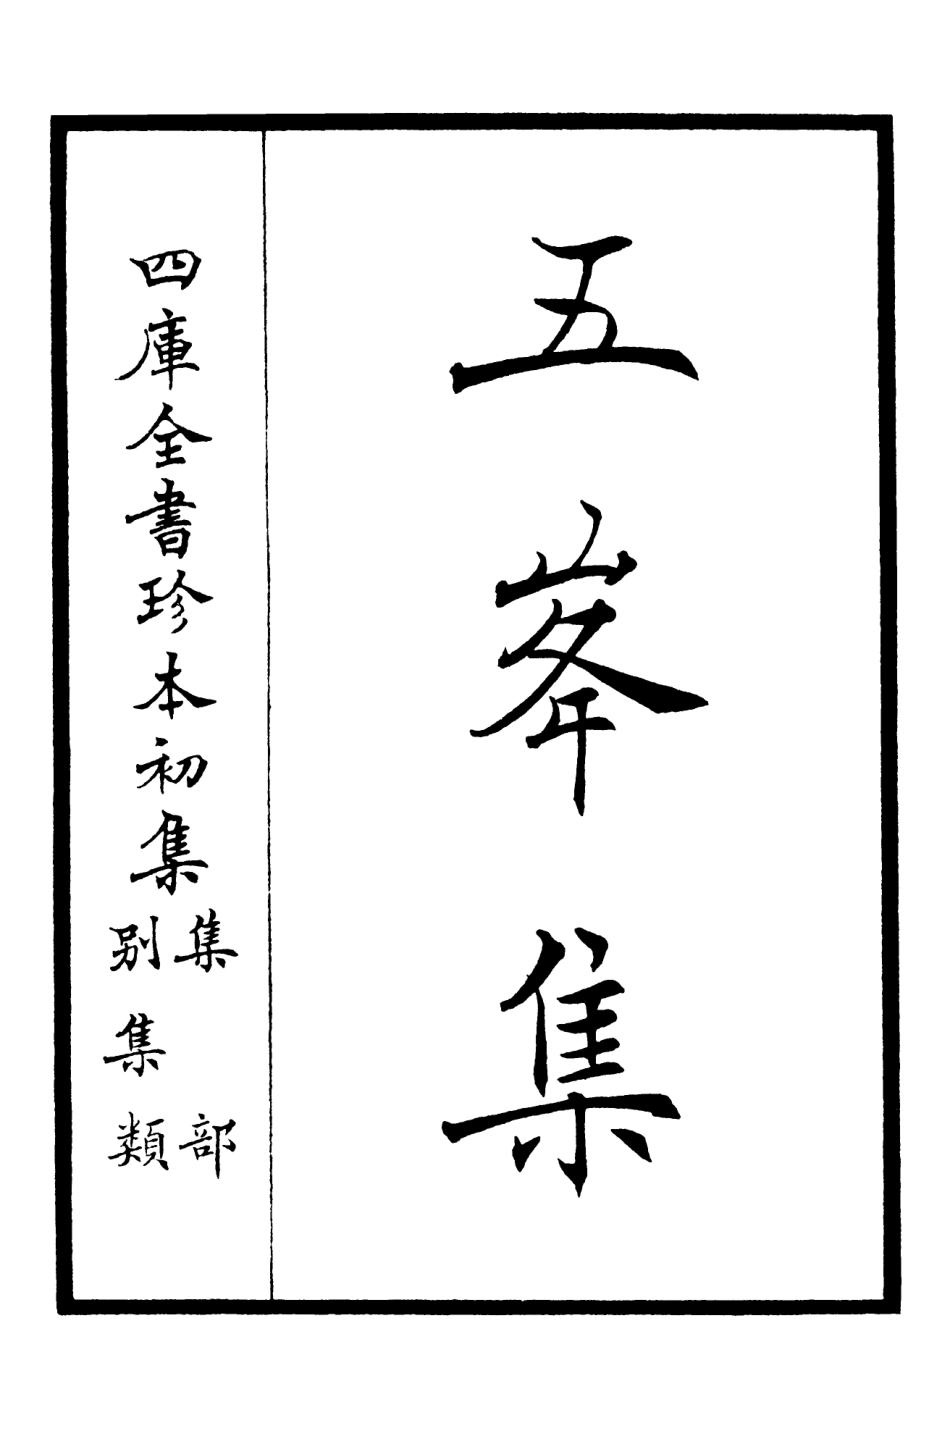 五峯集
四庫全書珍本初集
集部
別集類